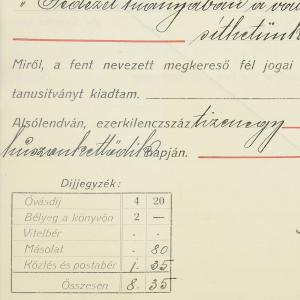 " Fedezet hiányában a vál
síthetünk
Miről, a fent nevezett megkereső fél jogai
tanusítványt kiadtam.
Alsólendván, ezerkilenczszáz tizenegy
huszonkettedik napján.
Díjjegyzék:
Óvásdíj 4 20
Bélyeg a könyvön 2 —
Vitelbér . .
Másolat . 80
Közlés és postabér 1. 35
Összesen 8. 35